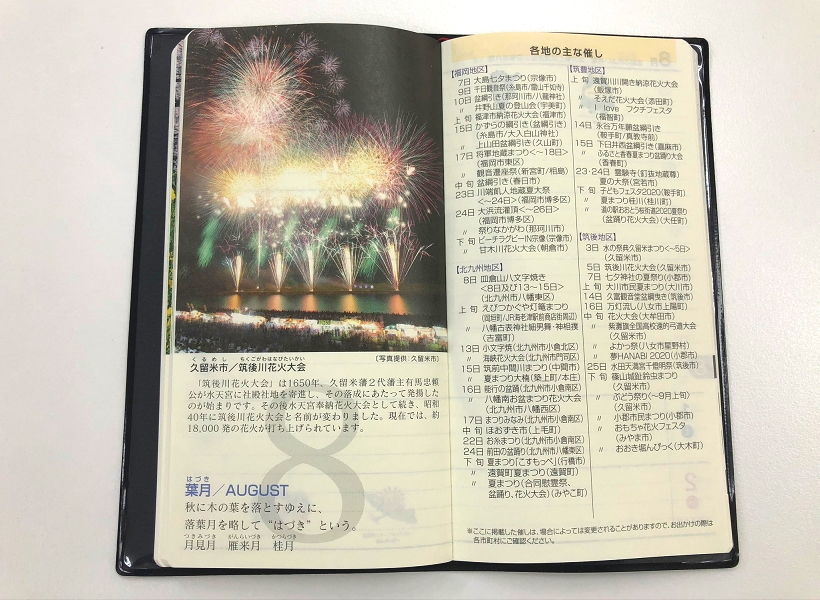 くるめし　ちくごがわはなびたいかい
久留米市／筑後川花火大会
〔写真提供：久留米市〕
「筑後川花火大会」は1650年、久留米藩２代藩主有馬忠頼
公が水天宮に社殿社地を寄進し、その落成にあたって発揚した
のが始まりです。その後水天宮奉納花火大会として続き、昭和
40年に筑後川花火大会と名前が変わりました。現在では、約
18,000発の花火が打ち上げられています。
8
はづき
葉月／AUGUST
秋に木の葉を落とすゆえに、
落葉月を略して“はづき”という。
つきみづき　がんらいづき　かつらづき
月見月　雁来月　桂月
各地の主な催し
【福岡地区】
7日 大島七夕まつり(宗像市)
9日 千日観音祭(糸島市/雷山千如寺)
10日 盆綱引き(那珂川市/八龍神社)
〃 井野山夏の登山会(宇美町)
上 旬 福津市納涼花火大会(福津市)
15日 かずらの綱引き(盆綱引き)
(糸島市/大入白山神社)
〃 上山田盆綱引き(久山町)
17日 将軍地蔵まつり<～18日>
(福岡市東区)
〃 観音遷座祭(新宮町/相島)
中 旬 盆綱引き(春日市)
23日 川端飢人地蔵夏大祭
<～24日>(福岡市博多区)
24日 大浜流灌頂<～26日>
(福岡市博多区)
〃 祭りなかがわ(那珂川市)
下 旬 ビーチラグビーIN宗像(宗像市)
〃 甘木川花火大会(朝倉市)
【北九州地区】
8日 皿倉山八文字焼き
<8日及び13～15日>
(北九州市八幡東区)
上 旬 えびつかぐや灯篭まつり
(岡垣町/JR海老津駅前商店街周辺)
〃 八幡古表神社細男舞・神相撲
(吉富町)
13日 小文字焼(北九州市小倉北区)
〃 海峡花火大会(北九州市門司区)
15日 筑前中間川まつり(中間市)
〃 夏まつり大楠(築上町/本庄)
16日 能行の盆踊(北九州市小倉南区)
〃 八幡南お盆まつり花火大会
(北九州市八幡西区)
17日 まつりみなみ(北九州市小倉南区)
中 旬 ほおずき市(上毛町)
22日 お糸まつり(北九州市小倉南区)
24日 前田の盆踊り(北九州市八幡東区)
下 旬 夏まつり「こすもっぺ」(行橋市)
〃 遠賀町夏まつり(遠賀町)
〃 夏まつり(合同慰霊祭、
盆踊り、花火大会)(みやこ町)
【筑豊地区】
上 旬 遠賀川川開き納涼花火大会
(飯塚市)
〃 そえだ花火大会(添田町)
〃 I love フクチフェスタ
(福智町)
14日 永谷万年願盆綱引き
(鞍手町/真教寺前)
15日 下臼井西盆綱引き(嘉麻市)
〃 ふるさと香春夏まつり盆踊り大会
(香春町)
23・24日 霊験寺(釘抜地蔵尊)
夏の大祭(宮若市)
下 旬 子どもフェスタ2020(鞍手町)
〃 夏まつり桂川(桂川町)
〃 道の駅おおとう桜街道2020夏祭り
(盆踊り花火大会)(大任町)
【筑後地区】
3日 水の祭典久留米まつり<～5日>
(久留米市)
5日 筑後川花火大会(久留米市)
7日 七夕神社の夏祭り(小郡市)
上 旬 大川市民夏まつり(大川市)
14日 久富観音堂盆綱曳き(筑後市)
16日 万灯流し(八女市上陽町)
中 旬 花火大会(大牟田市)
〃 紫灘旗全国高校遠的弓道大会
(久留米市)
〃 よかっ祭(八女市星野村)
〃 夢HANABI 2020(小郡市)
25日 水田天満宮千燈明祭(筑後市)
下 旬 篠山城趾鈴虫まつり
(久留米市)
〃 ぶどう祭り<～9月上旬>
(久留米市)
〃 小郡市民まつり(小郡市)
〃 おもちゃ花火フェスタ
(みやま市)
〃 おおき堀んぴっく(大木町)
※ここに掲載した催しは、場合によっては変更されることがありますので、お出かけの際は
各市町村にご確認ください。